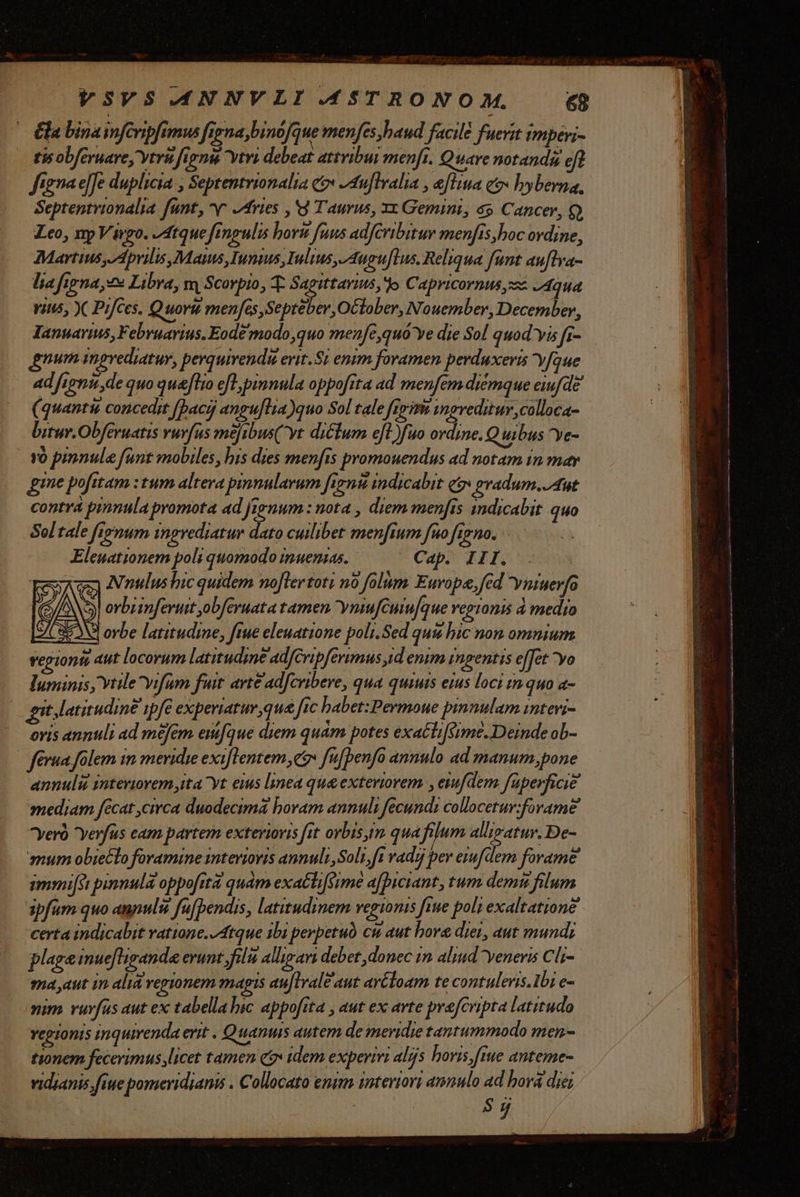 VSVS ANNVLI ASTRONOM. 68
Cla bina inſcripſimus ſigna, binoſque menſes, haud facilè fuerit imperi-
tis obſeruare, vtrũ ſignũ vtri debeat attribui menſi. Quare notandũ eſt
ſigna eſſe duplicia, Septentrionalia & Auſtralia, æſtiua & hyberna.
Septentrionalia ſunt, ♈ Aries, ♉ Taurus, ♊ Gemini, ♋ Cancer, ♌
Leo, ♍ Virgo. Atque ſingulis horũ ſuus adſcribitur menſis, hoc ordine,
Martius, Aprilis, Maius, Iunius, Iulius, Auguſtus. Reliqua ſunt auſtra-
lia ſigna, ♎ Libra, ♏ Scorpio, ♐ Sagittarius, ♑ Capricornus, ♒ Aqua
rius, ♓ Piſces. Quorũ menſes, Septẽber, October, Nouember, December,
Ianuarius, Februarius. Eodẽ modo, quo menſe, quó ve die Sol quod vis ſi-
gnum ingrediatur, perquirendũ erit. Si enim foramen perduxeris vſque
ad ſignũ, de quo quæſtio eſt, pinnula oppoſita ad menſem diémque eiuſdẽ
(quantũ concedit ſpacij anguſtia) quo Sol tale ſignũ ingreditur, colloca-
bitur. Obſeruatis rurſus mẽſibus (vt dictum eſt) ſuo ordine. Quibus ve-
rò pinnulæ ſunt mobiles, his dies menſis promouendus ad notam in mar
gine poſitam: tum altera pinnularum ſignũ indicabit & gradum. Aut
contrà pinnula promota ad ſignum: nota, diem menſis indicabit quo
Sol tale ſignum ingrediatur dato cuilibet menſium ſuo ſigno.
Eleuationem poli quomodo inuenias. Cap. III.
ANnulus hic quidem noſter toti nõ ſolùm Europæ, ſed vniuerſo
orbi inſeruit, obſeruata tamen vniuſcuiuſque regionis à medio
orbe latitudine, ſiue eleuatione poli. Sed quũ hic non omnium
regionũ aut locorum latitudinẽ adſcripſerimus, id enim ingentis eſſet vo
luminis, vtile viſum fuit artẽ adſcribere, qua quiuis eius loci in quo a-
git, latitudinẽ ipſe experiatur, quæ ſic habet: Permoue pinnulam interi-
oris annuli ad mẽſem eiúſque diem quàm potes exactiſſimè. Deinde ob-
ſerua ſolem in meridie exiſtentem, & ſuſpenſo annulo ad manum, pone
annulũ interiorem, ita vt eius linea quæ exteriorem, eiuſdem ſuperficiẽ
mediam ſecat, circa duodecimã horam annuli ſecundi collocetur: foramẽ
verò verſus eam partem exterioris ſit orbis, in qua filum alligatur. De-
mum obiecto foramine interioris annuli, Soli, ſi radij per eiuſdem foramẽ
immiſſi pinnulã oppoſitã quàm exactiſſimè aſpiciant, tum demũ filum
ipſum quo annulũ ſuſpendis, latitudinem regionis ſiue poli exaltationẽ
certa indicabit ratione. Atque ibi perpetuò cũ aut horæ diei, aut mundi
plagæ inueſtigandæ erunt, filũ alligari debet, donec in aliud veneris Cli-
ma, aut in aliã regionem magis auſtralẽ aut arctoam te contuleris. Ibi e-
nim rurſus aut ex tabella hîc appoſita, aut ex arte præſcripta latitudo
regionis inquirenda erit. Quanuis autem de meridie tantummodo men-
tionem fecerimus, licet tamen & idem experiri alijs horis, ſiue anteme-
ridianis, ſiue pomeridianis. Collocato enim interiori annulo ad horã diei
S ij